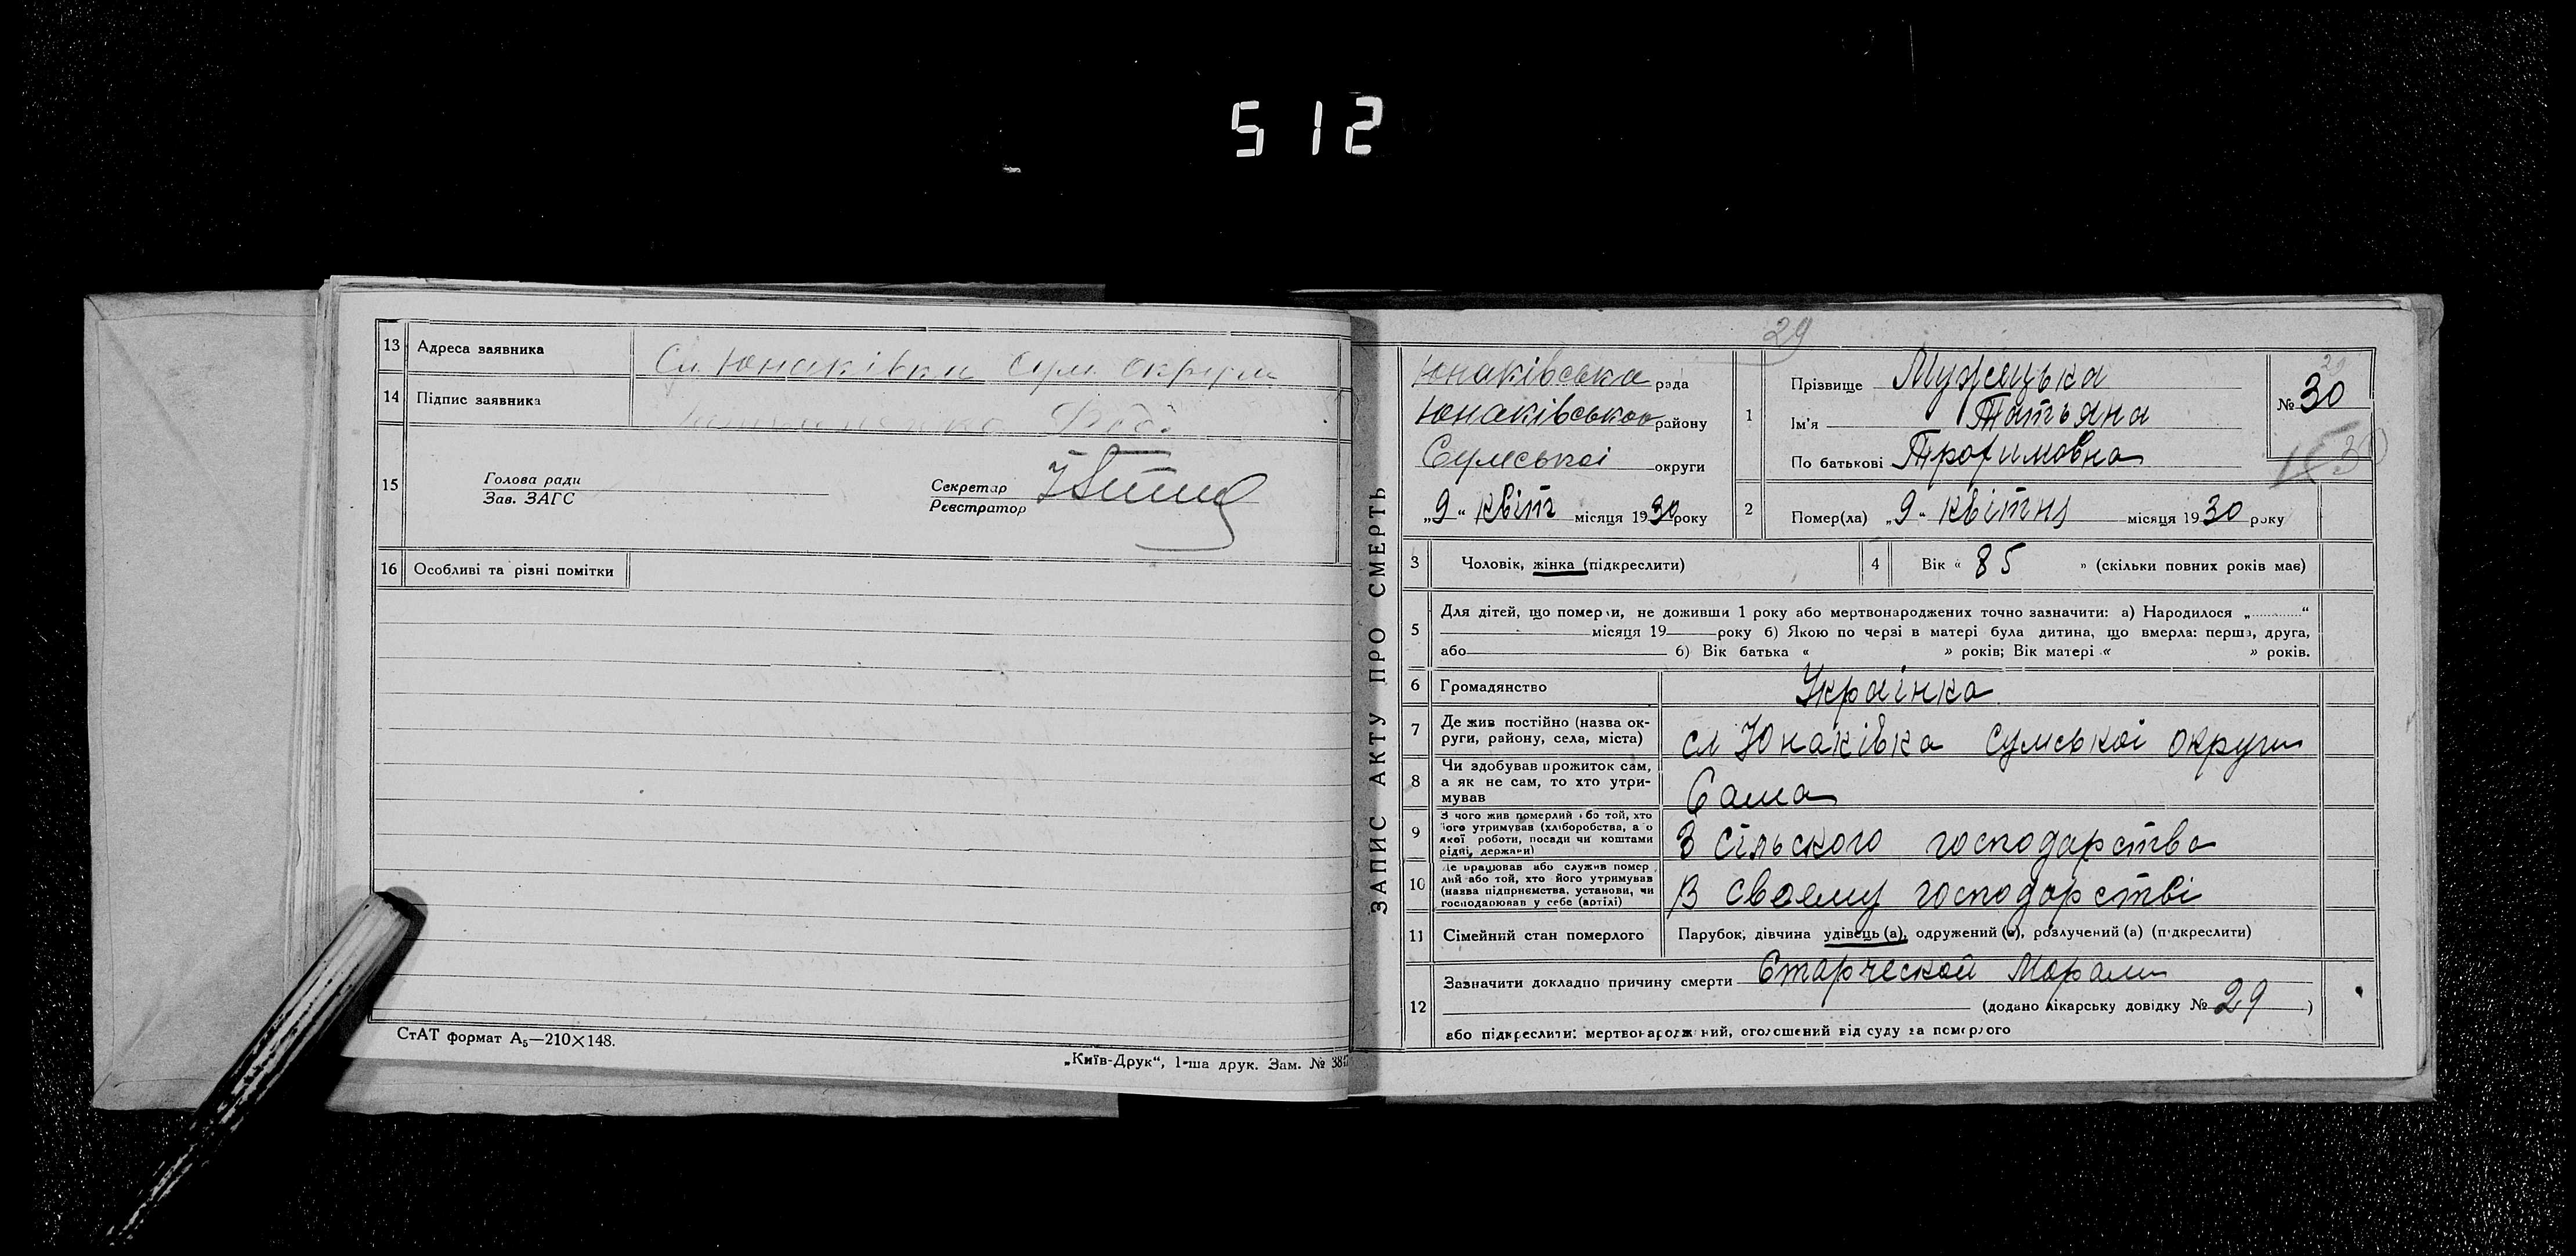 512
13 Адреса заявника Сл. Юнаківка Сум. округи
14 Підпис заявника
15 Голова ради
Зав. ЗАГС
Секретар
Реєстратор
16 Особливі та різні помітки
СтАТ формат А5—210×148.
„Київ-Друк“, 1-ша друк. Зам. №
ЗАПИС АКТУ ПРО СМЕРТЬ
29
Юнаківська рада
Юнаківської району
Сумської округи
„9“ квіт місяця 1930 року
1 Прізвище Мужецька
Ім'я Татьяна
По батькові Трофимовна
29
№ 30
2 Помер(ла) „9“ квітня місяця 1930 року
3 Чоловік, жінка (підкреслити)
4 Вік « 85 » (скільки повних років має)
5 Для дітей, що померли, не доживши 1 року або мертвонароджених точно зазначити: а) Народилося „ “
місяця 19 року б) Якою по черзі в матері була дитина, що вмерла: перша, друга,
або б) Вік батька « » років; Вік матері « » років.
6 Громадянство Українка
7 Де жив постійно (назва округи, району, села, міста) сл Юнаківка Сумської округи
8 Чи здобував прожиток сам,
а як не сам, то хто утри-
мував Сама
9 З чого жив померлий або той, хто
його утримував (хліборобства, а о
якої роботи, посади чи коштами
рідні, держави) З сільского господарства
10 Де працював або служив помер
лий або той, хто його утримував
(назва підприємства, установи, чи
господарював у себе (артілі) В своему господарстві
11 Сімейний стан померлого Парубок, дівчина удівець (а), одружений (а), розлучений (а) (підкреслити)
12 Зазначити докладно причину смерти Старческой Марали
(додано лікарську довідку № 29 )
або підкреслити: мертвонароджений, оголошений від суду за померлого